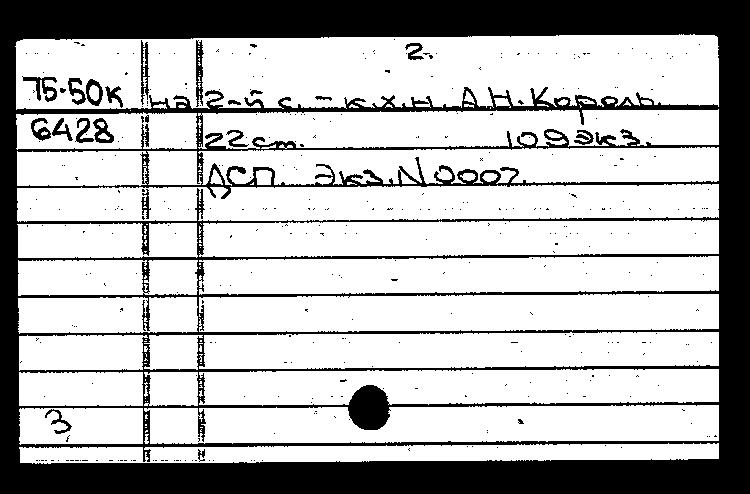 2.
75-50к на 2-й с. - к.х.н. А.Н. Король.
6428 22 cm. 109 экз.
ДСП. Экз. N 0007.
3